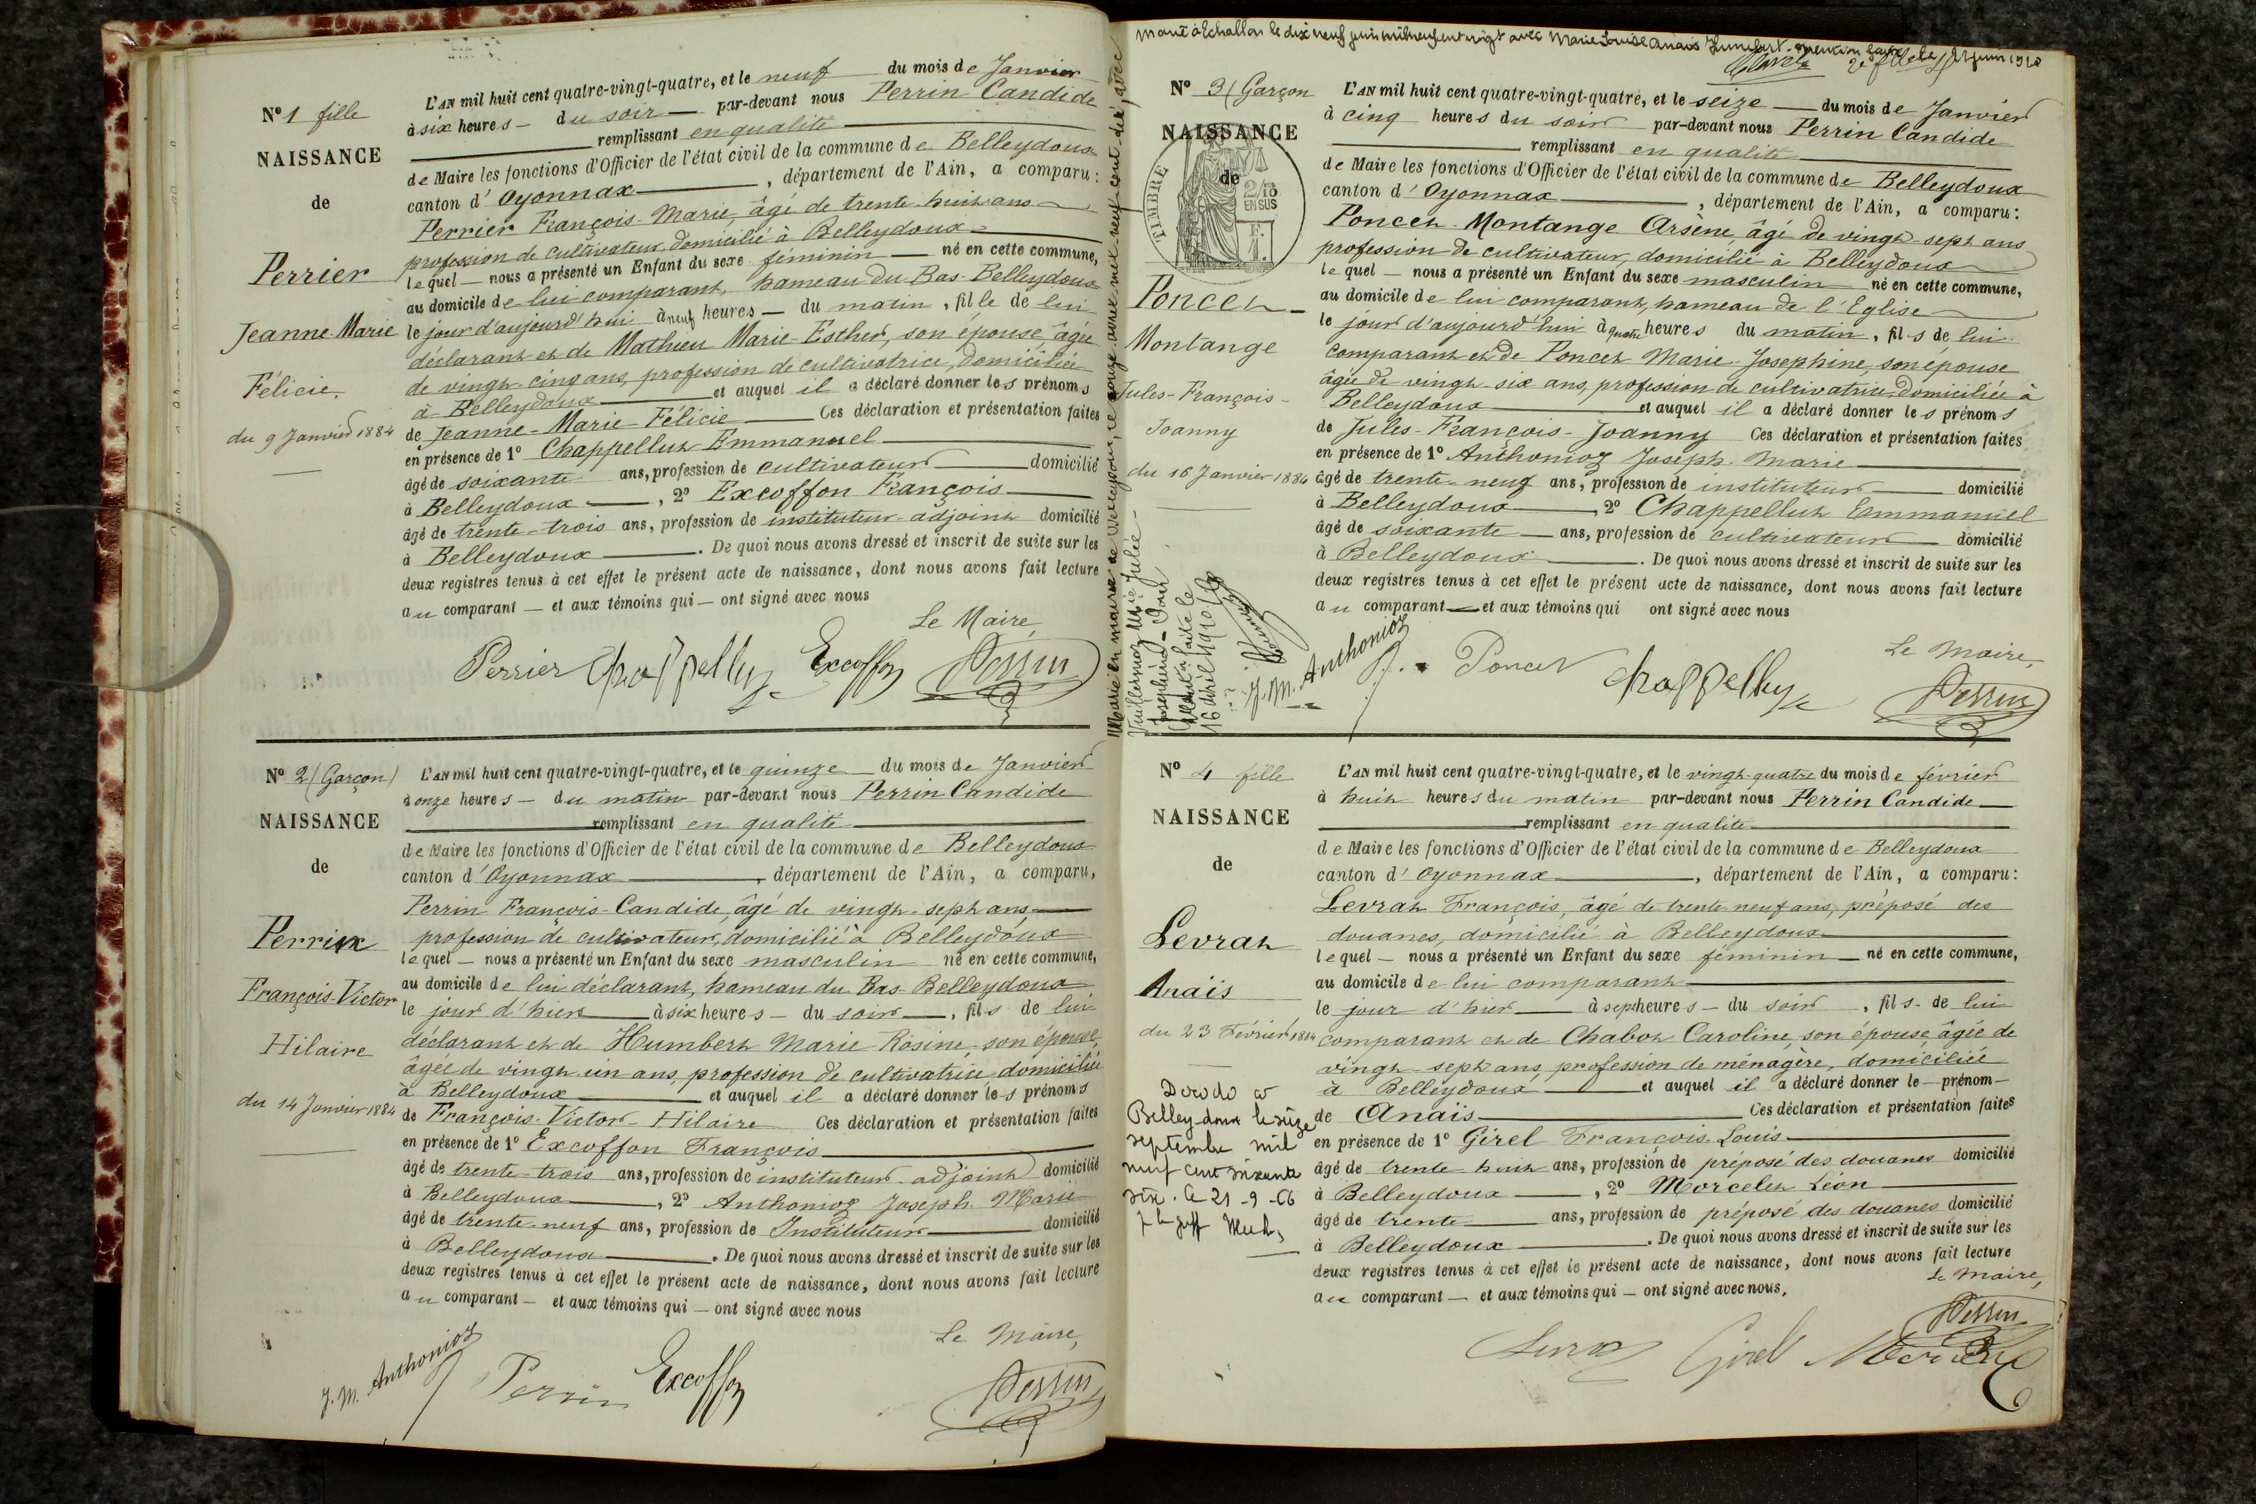 N° 1 fille
NAISSANCE
de
Perrier
Jeanne-Marie
Félicie.
du 9 Janvier 1884
L'AN mil huit cent quatre-vingt-quatre, et le neuf du mois de Janvier
à six heures – du soir par-devant nous Perrin Candide
remplissant en qualité
de Maire les fonctions d'Officier de l'état civil de la commune de Belleydoux
canton d'Oyonnax, département de l'Ain, a comparu:
Perrier François-Marie, âgé de trente-huit ans
profession de cultivateur, domicilié à Belleydoux
lequel – nous a présenté un Enfant du sexe féminin né en cette commune,
au domicile de lui comparant, hameau du Bas-Belleydoux
le jour d'aujourd'hui à neuf heures – du matin, fille de lui
déclarant et de Mathieu Marie-Esther, son épouse, âgée
de vingt-cinq ans, profession de cultivatrice, domiciliée
à Belleydoux et auquel il a déclaré donner les prénoms
de Jeanne-Marie-Félicie Ces déclaration et présentation faites
en présence de 1° Chappelluz Emmanuel
âgé de soixante ans, profession de cultivateur domicilié
à Belleydoux, 2° Excoffon François
âgé de trente-trois ans, profession de instituteur-adjoint domicilié
à Belleydoux. De quoi nous avons dressé et inscrit de suite sur les
deux registres tenus à cet effet le présent acte de naissance, dont nous avons fait lecture
au comparant – et aux témoins qui – ont signé avec nous
Le Maire,
Perrier Chappelluz Excoffon Perrin
N° 2 (Garçon)
NAISSANCE
de
Perrin
François-Victor
Hilaire
du 14 Janvier 1884
L'AN mil huit cent quatre-vingt-quatre, et le quinze du mois de Janvier
à onze heures – du matin par-devant nous Perrin Candide
remplissant en qualité
de Maire les fonctions d'Officier de l'état civil de la commune de Belleydoux
canton d'Oyonnax, département de l'Ain, a comparu,
Perrin François-Candide, âgé de vingt-sept ans,
profession de cultivateur, domicilié à Belleydoux
lequel – nous a présenté un Enfant du sexe masculin né en cette commune,
au domicile de lui déclarant, hameau du Bas-Belleydoux
le jour d'hier à six heures – du soir, fils de lui
déclarant et de Humbert Marie Rosine, son épouse,
âgée de vingt-un ans, profession de cultivatrice domiciliée
à Belleydoux et auquel il a déclaré donner les prénoms
de François-Victor-Hilaire Ces déclaration et présentation faites
en présence de 1° Excoffon François
âgé de trente-trois ans, profession de instituteur-adjoint domicilié
à Belleydoux, 2° Anthonioz Joseph-Marie
âgé de trente-neuf ans, profession de Instituteur domicilié
à Belleydoux. De quoi nous avons dressé et inscrit de suite sur les
deux registres tenus à cet effet le présent acte de naissance, dont nous avons fait lecture
au comparant – et aux témoins qui – ont signé avec nous
Le Maire,
J. M. Anthonioz Perrin Excoffon Perrin
Marié à Echallon le dix neuf juin mil neuf cent vingt avec Marie Louise Anaïs Humbert. mention faite
juin 1920
N° 3 (Garçon
NAISSANCE
de
TIMBRE
2/10 EN SUS
Poncet-
Montange
Jules-François-
Joanny
du 16 Janvier 1884
L'AN mil huit cent quatre-vingt-quatre, et le seize du mois de Janvier
à cinq heures du soir par-devant nous Perrin Candide
remplissant en qualité
de Maire les fonctions d'Officier de l'état civil de la commune de Belleydoux
canton d'Oyonnax, département de l'Ain, a comparu:
Poncet-Montange Arsène âgé de vingt-sept ans
profession de cultivateur, domicilié à Belleydoux
lequel – nous a présenté un Enfant du sexe masculin né en cette commune,
au domicile de lui comparant, hameau de l'Eglise
le jour d'aujourd'hui à quatre heures du matin, fils de lui
comparant et de Poncet Marie-Josephine, son épouse
âgée de vingt-six ans, profession de cultivatrice domiciliée à
Belleydoux et auquel il a déclaré donner les prénoms
de Jules-François-Joanny Ces déclaration et présentation faites
en présence de 1° Anthonioz Joseph-Marie
âgé de trente-neuf ans, profession de instituteur domicilié
à Belleydoux, 2° Chappelluz Emmanuel
âgé de soixante ans, profession de cultivateur domicilié
à Belleydoux. De quoi nous avons dressé et inscrit de suite sur les
deux registres tenus à cet effet le présent acte de naissance, dont nous avons fait lecture
au comparant – et aux témoins qui ont signé avec nous
Le Maire,
J. M. Anthonioz Poncet Chappelluz Perrin
Marié en mairie de Belleydoux, avril mil neuf cent dix, avec
Vuillermoz Marie Julie
Joséphine
16 avril
N° 4 fille
NAISSANCE
de
Levrat
Anais
du 23 Février 1884
Décédée à
Belleydoux le seize
septembre mil
neuf cent soixante
six. Le 21-9-66
L'AN mil huit cent quatre-vingt-quatre, et le vingt-quatre du mois de février
à huit heures du matin par-devant nous Perrin Candide
remplissant en qualité
de Maire les fonctions d'Officier de l'état civil de la commune de Belleydoux
canton d'Oyonnax, département de l'Ain, a comparu:
Levrat François, âgé de trente-neuf ans, préposé des
douanes, domicilié à Belleydoux
lequel – nous a présenté un Enfant du sexe féminin né en cette commune,
au domicile de lui comparant
le jour d'hier à sept heures – du soir, fils de lui
comparant et de Chabot Caroline, son épouse âgée de
vingt-sept ans, profession de ménagère, domiciliée
à Belleydoux et auquel il a déclaré donner le – prénom –
de Anaïs Ces déclaration et présentation faites
en présence de 1° Girel François Louis
âgé de trente-huit ans, profession de préposé des douanes domicilié
à Belleydoux, 2° Morcelet Léon
âgé de trente ans, profession de préposé des douanes domicilié
à Belleydoux. De quoi nous avons dressé et inscrit de suite sur les
deux registres tenus à cet effet le présent acte de naissance, dont nous avons fait lecture
au comparant – et aux témoins qui – ont signé avec nous.
Le Maire,
Perrin
Levrat Girel